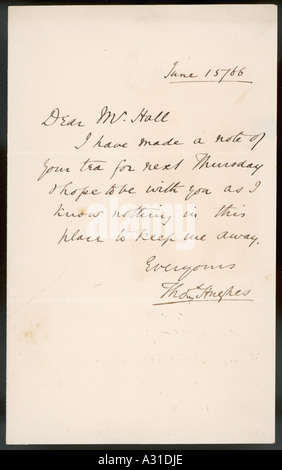 June 15/66
Dear Mr. Hall
I have made a note of
your tea for next Thursday
& hope to be with you as I
know nothing in this
place to keep me away.
Ever yours
Thos. Hughes
alamy
alamy
A31DJE